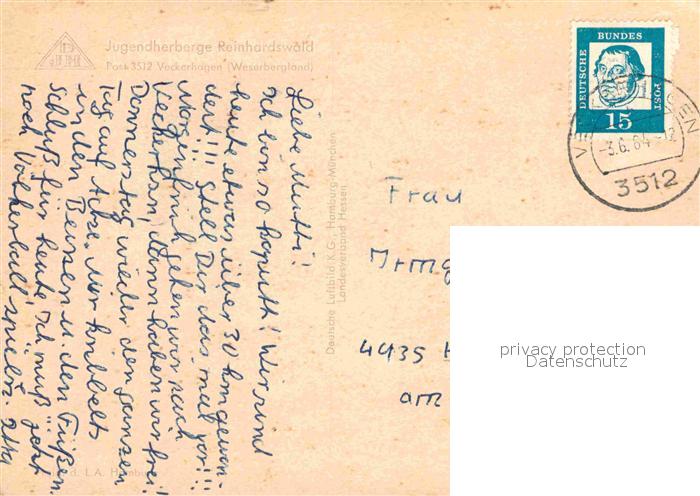 DJH
Jugendherberge Reinhardswald
Post 3512 Veckerhagen (Weserbergland)
Liebe Mutti!
Ich bin so kaputt! Wir sind
heute etwas über 30 km gewan-
dert!!! Stell Dir das mal vor!!!
Morgen früh gehen wir nach
Veckerhsn, dann haben wir frei!
Donnerstag wieder den ganzen
Tag auf Achse. Mir kribbelts
in den Beinen u. den Füßen.
Schluß für heute, ich muß jetzt
noch Völkerball spielen.
Deutsche Luftbild K.G., Hamburg-München
Landesverband Hessen
L.A. Hamburg
DEUTSCHE BUNDESPOST
15
3.6.64-12
3512
Frau
Irmg
4435 H
am
privacy protection
Datenschutz